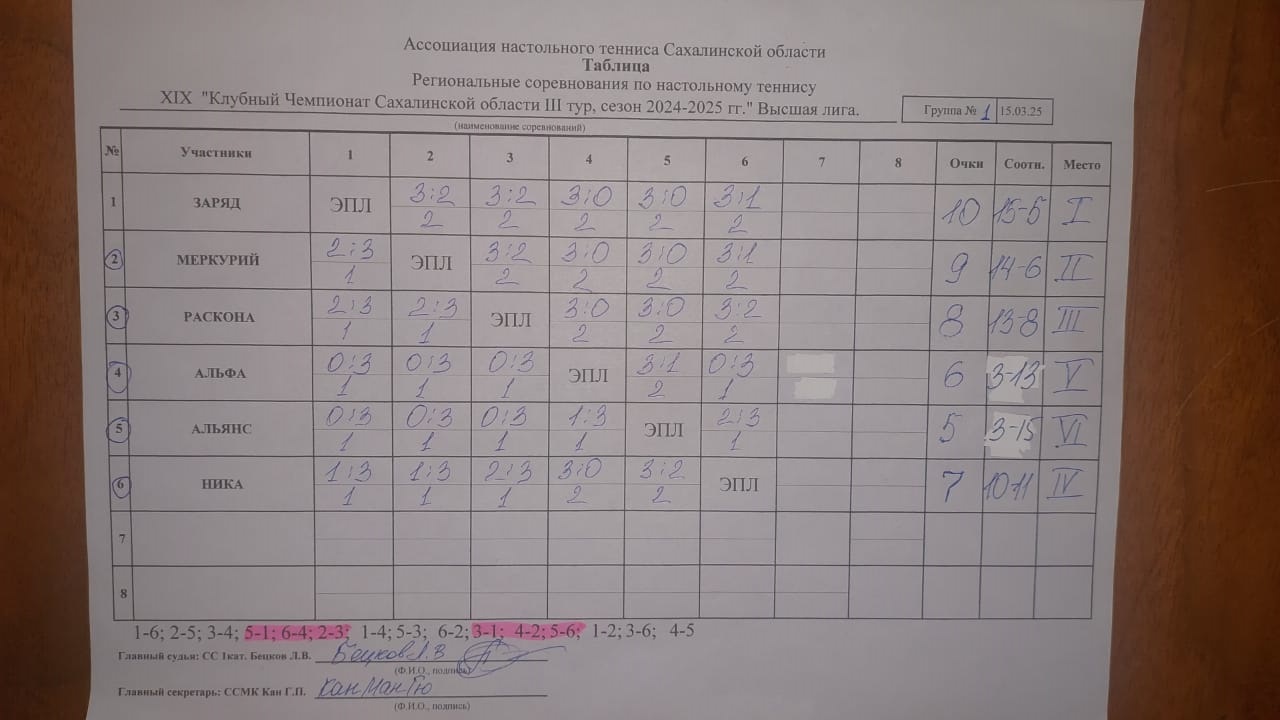 Ассоциация настольного тенниса Сахалинской области
Таблица
Региональные соревнования по настольному теннису
XIX "Клубный Чемпионат Сахалинской области III тур, сезон 2024-2025 гг." Высшая лига.
Группа № 1 15.03.25
(наименование соревнований)
№ Участники 1 2 3 4 5 6 7 8 Очки Соотн. Место
1 ЗАРЯД ЭПЛ 3:2 3:2 3:0 3:0 3:1 10 15-5 I
2 2 2 2 2
2 МЕРКУРИЙ 2:3 ЭПЛ 3:2 3:0 3:0 3:1 9 14-6 II
1 2 2 2 2
3 РАСКОНА 2:3 2:3 ЭПЛ 3:0 3:0 3:2 8 13-8 III
1 1 2 2 2
4 АЛЬФА 0:3 0:3 0:3 ЭПЛ 3:1 0:3 6 3-13 V
1 1 1 2 1
5 АЛЬЯНС 0:3 0:3 0:3 1:3 ЭПЛ 2:3 5 3-15 VI
1 1 1 1 1
6 НИКА 1:3 1:3 2:3 3:0 3:2 ЭПЛ 7 10-11 IV
1 1 1 2 2
7
8
1-6; 2-5; 3-4; 5-1; 6-4; 2-3; 1-4; 5-3; 6-2; 3-1; 4-2; 5-6; 1-2; 3-6; 4-5
Главный судья: СС 1кат. Бецков Л.В. Бецков Л.В
(Ф.И.О., подпись)
Главный секретарь: ССМК Кан Г.П. Кан Ман Гю
(Ф.И.О., подпись)